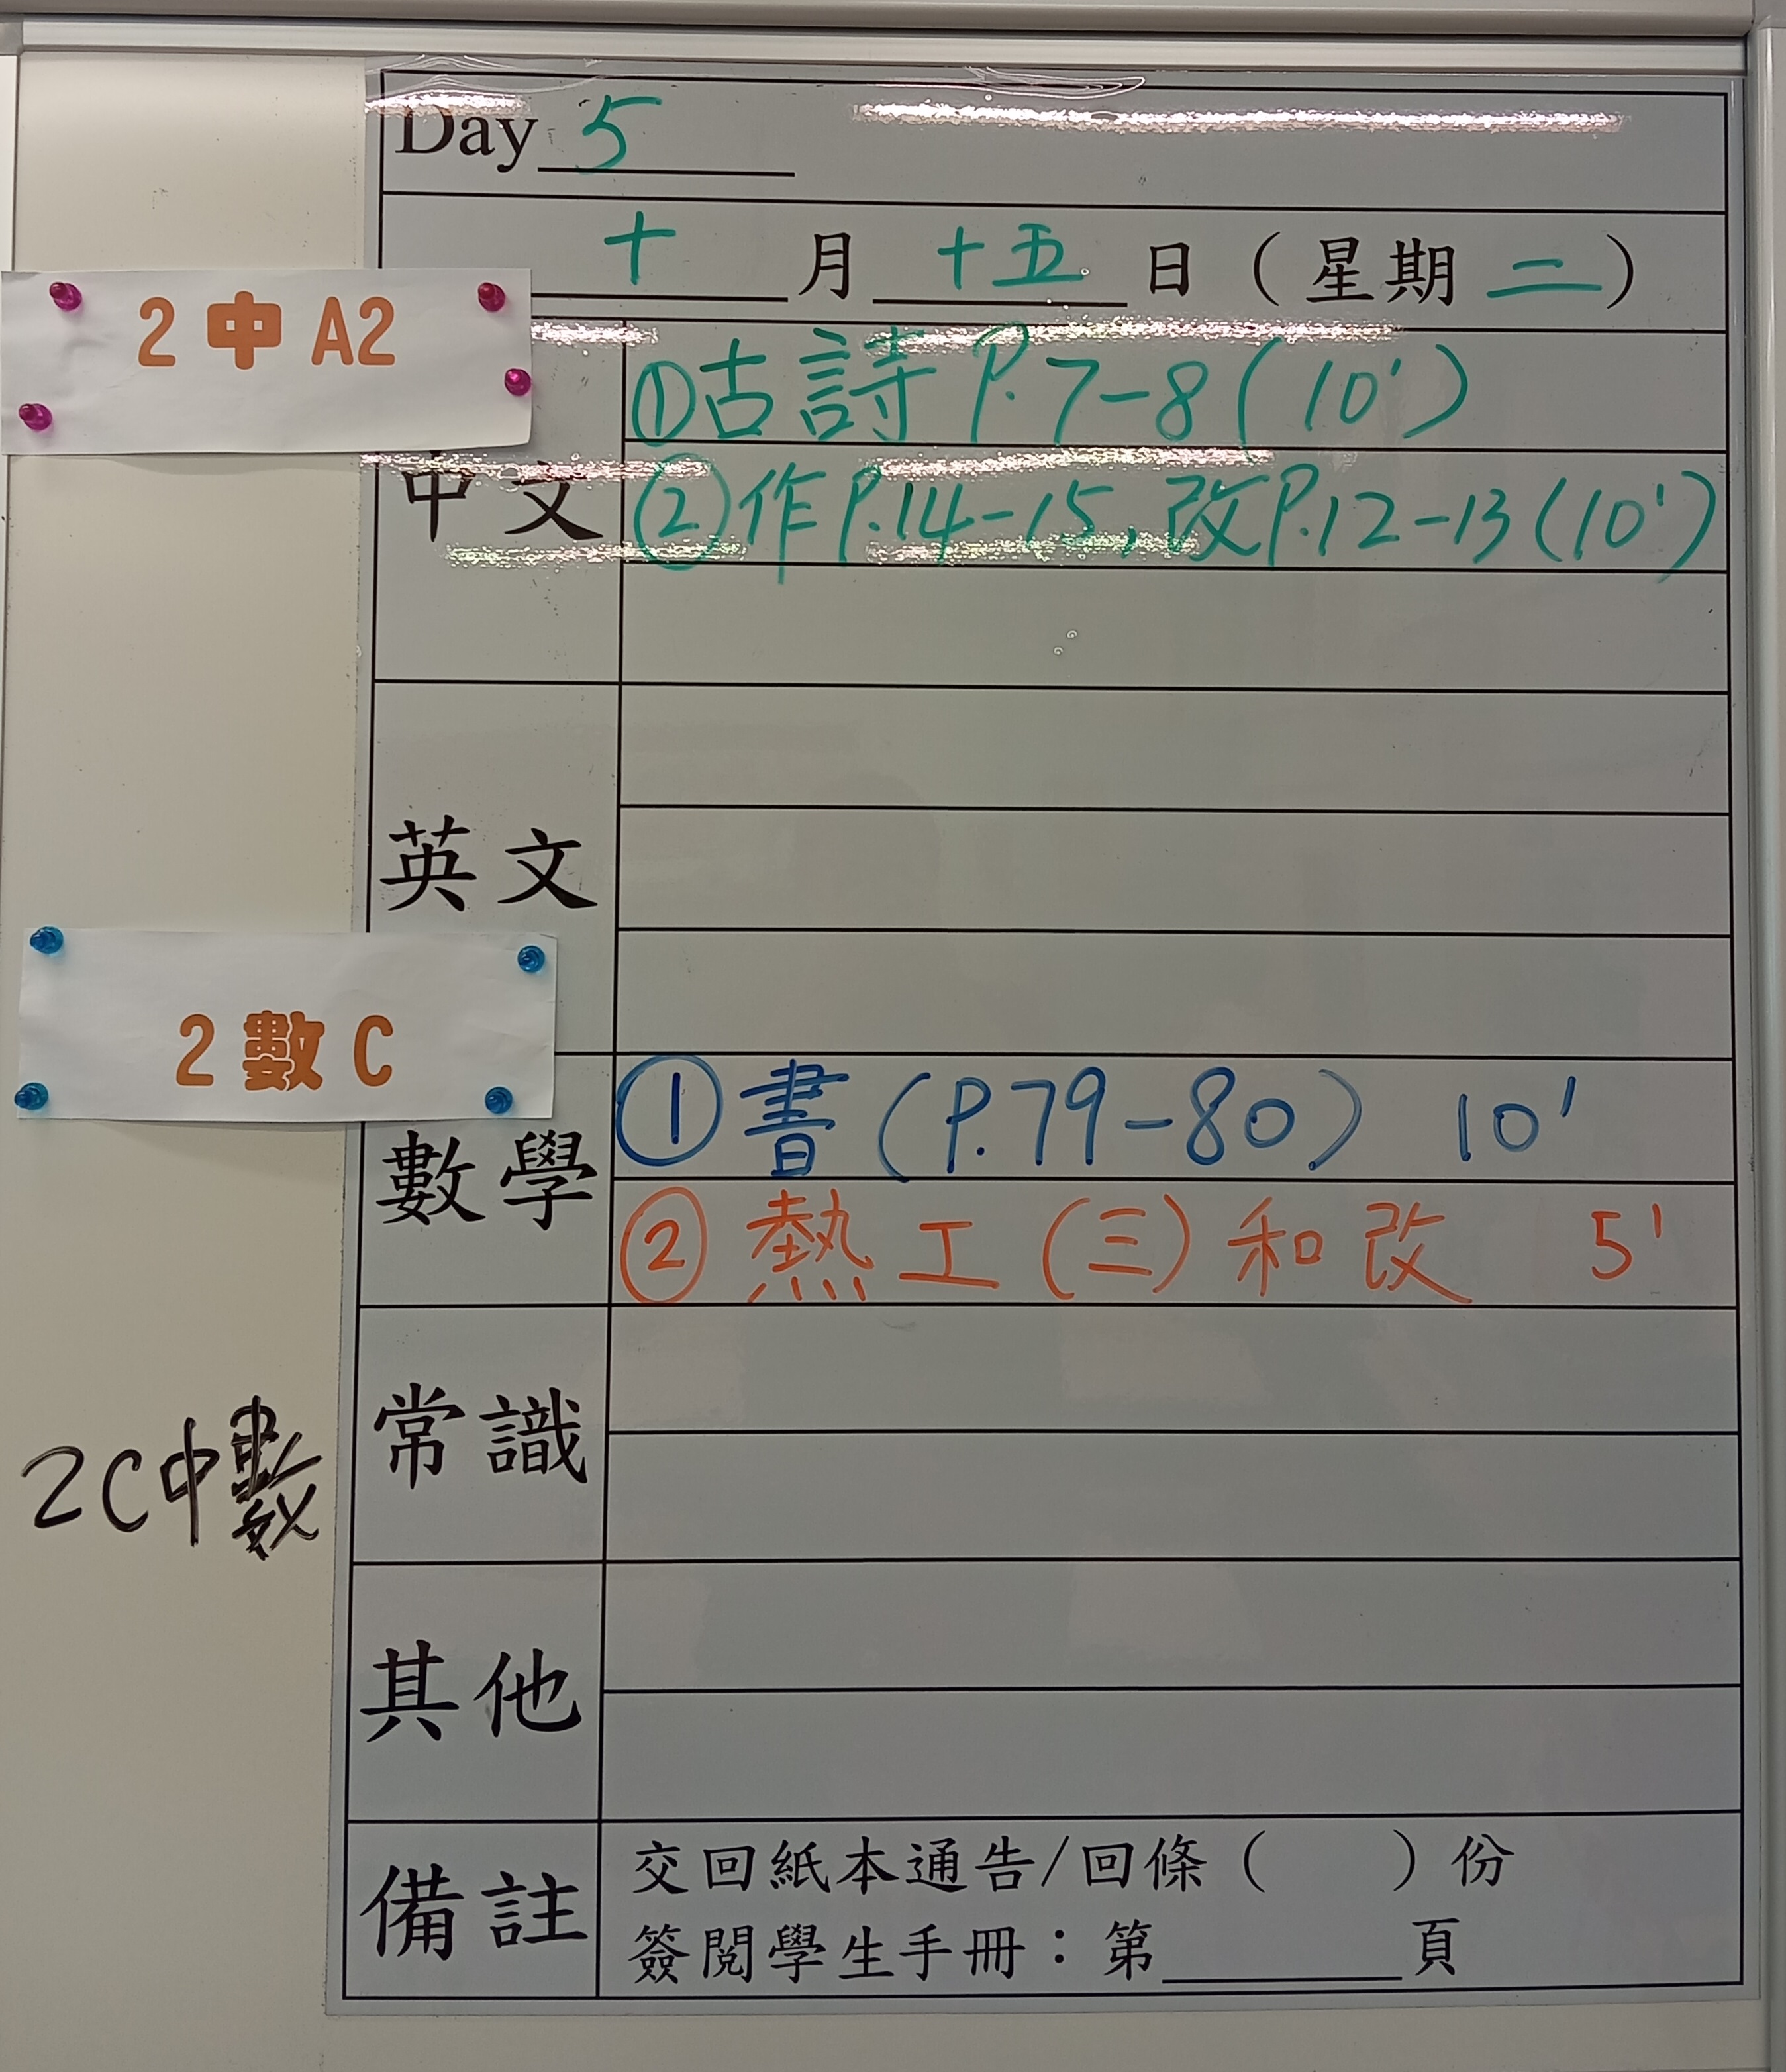 Day 5
十 月 十五 日（星期 二）
2 中 A2
中文
①古詩 P.7-8 (10')
②作P.14-15, 改P.12-13 (10')
英文
2 數 C
數學
① 書 (P.79-80) 10'
② 熱工 (三) 和改 5'
常識
2C中數
其他
備註
交回紙本通告/回條（ ）份
簽閱學生手冊：第______頁